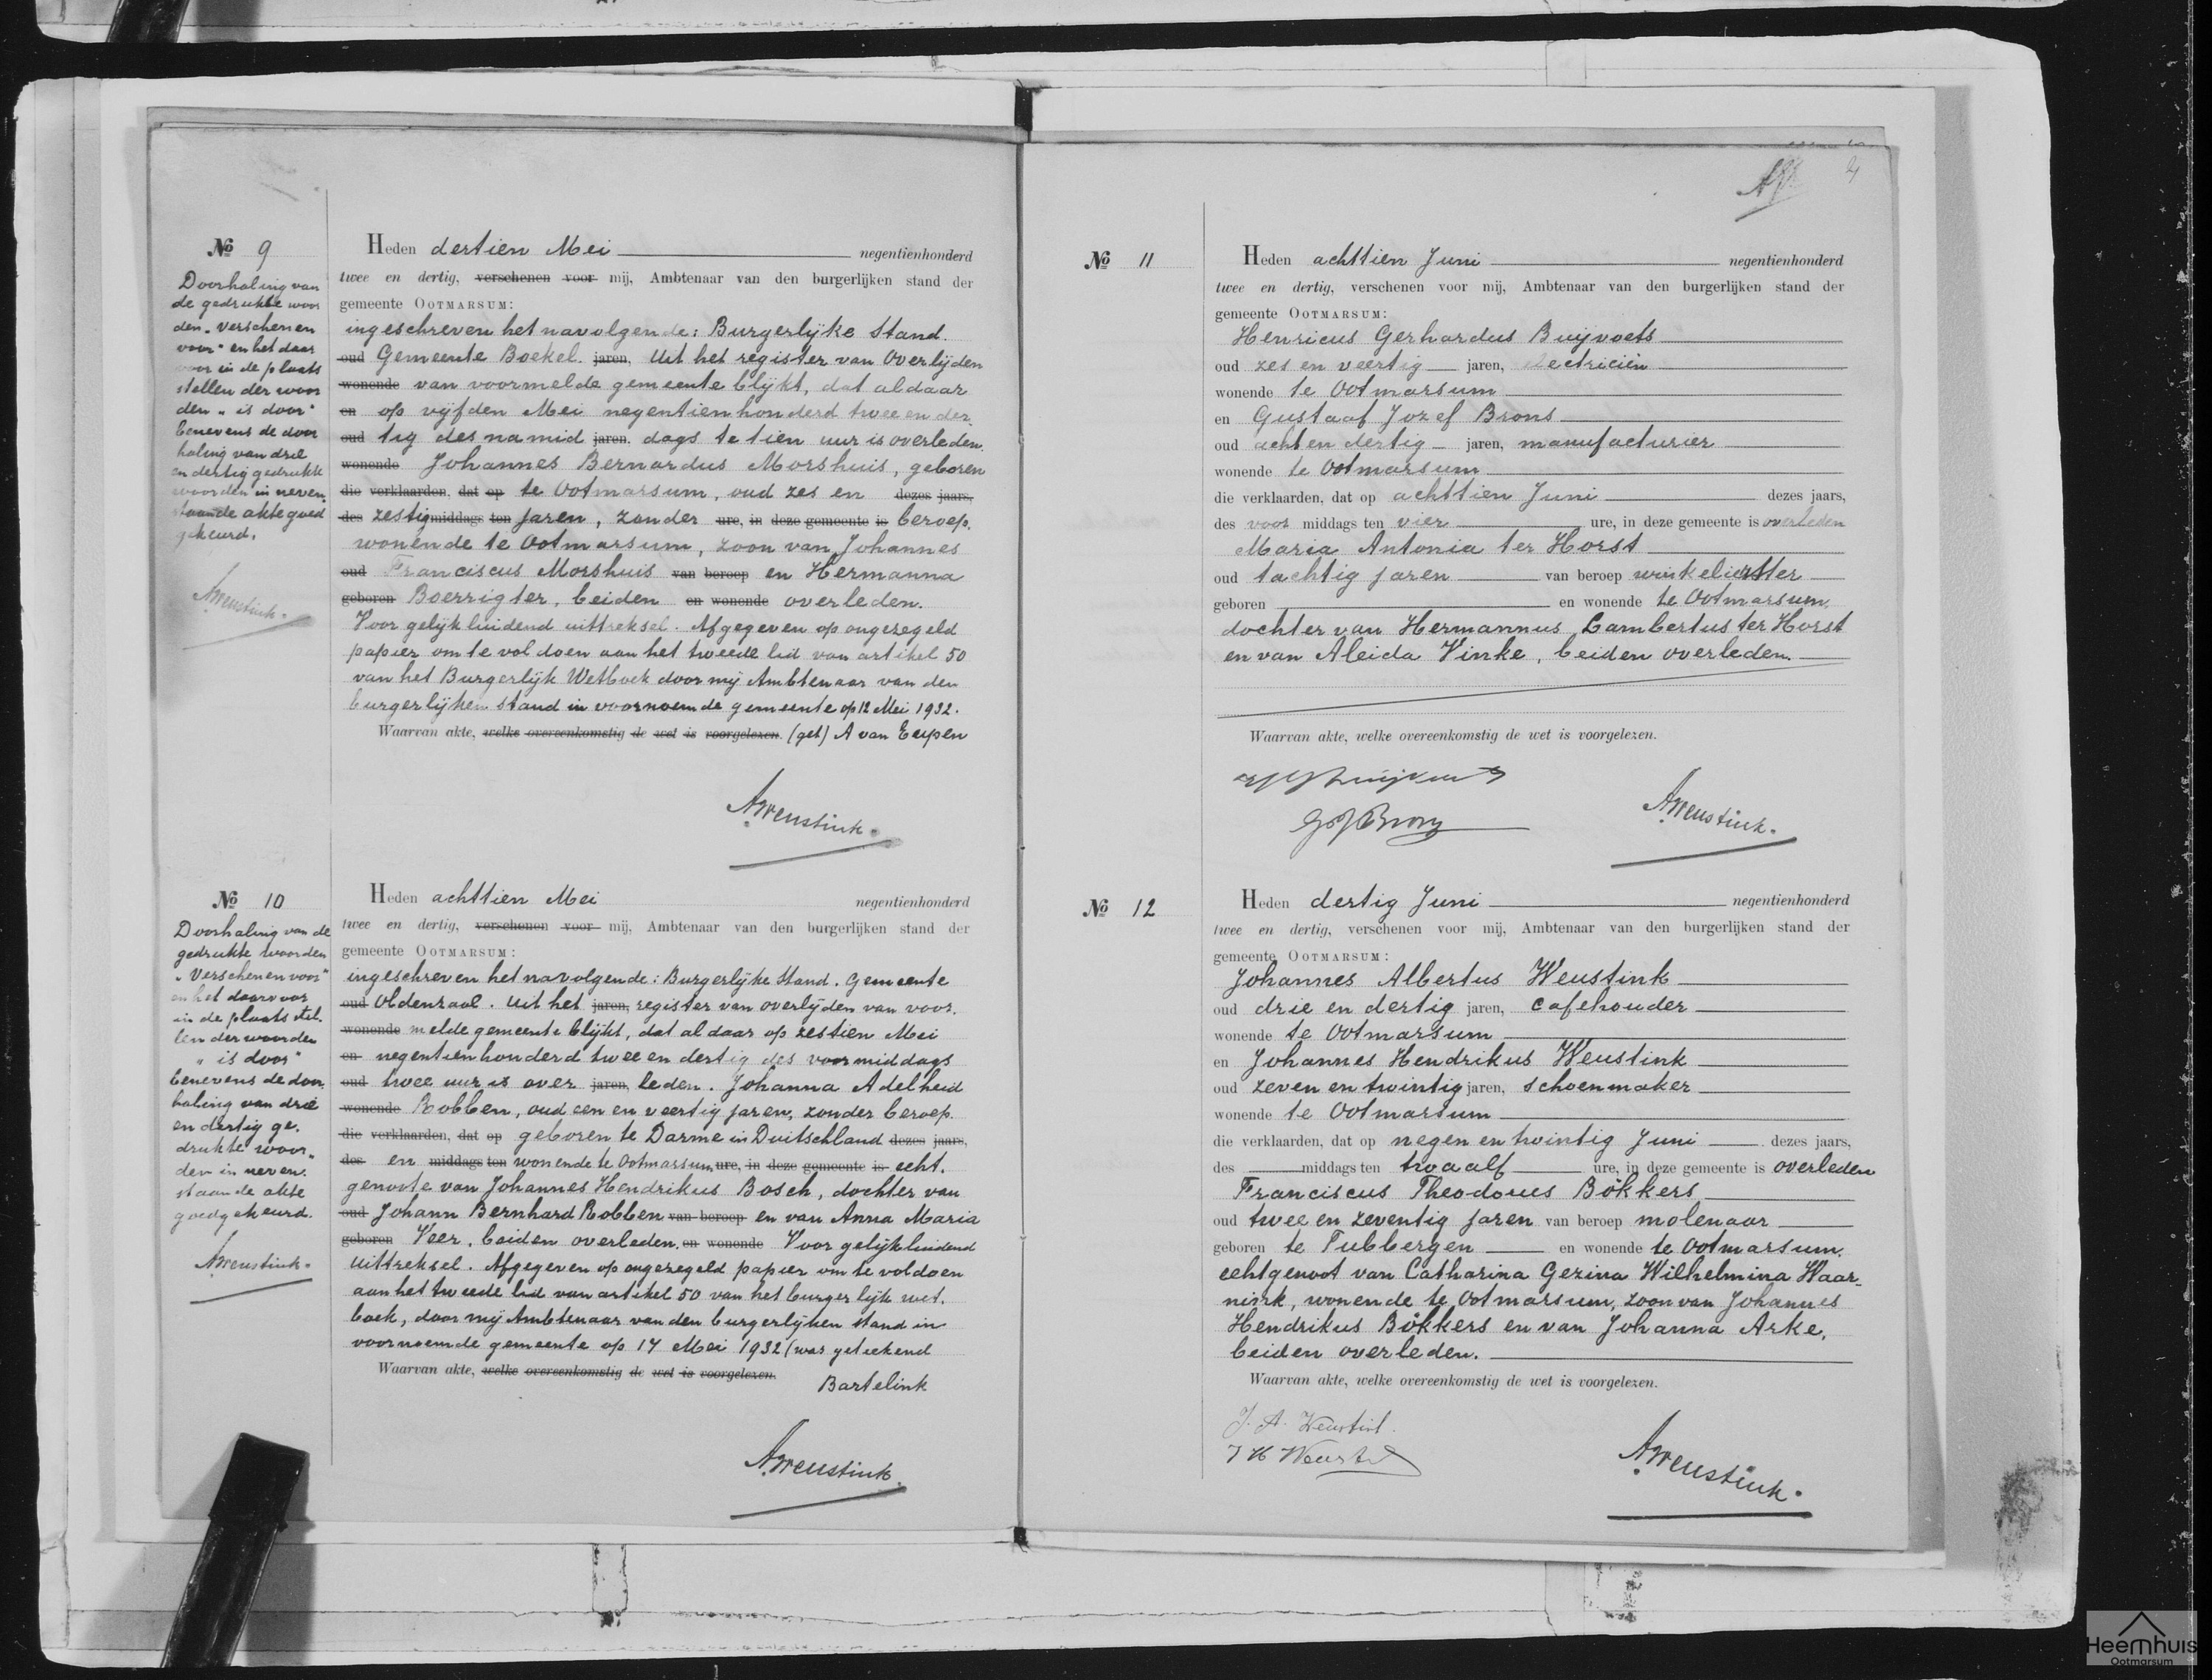 № 9
Doorhaling van
de gedrukte woor
den „verschenen
voor" en het daar
voor in de plaats
stellen der woor
den „is door"
benevens de door
haling van drie
en dertig gedrukte
woorden in neven
staande akte goed
gekeurd.
AWeustink.
Heden dertien Mei negentienhonderd
twee en dertig, verschenen voor mij, Ambtenaar van den burgerlijken stand der
gemeente OOTMARSUM:
ingeschreven het navolgende: Burgerlijke Stand.
oud Gemeente Boekel. jaren, Uit het register van Overlijden
wonende van voormelde gemeente blijkt, dat aldaar
en op vijfden Mei negentienhonderd twee en der
oud tig des namid jaren, dags te tien uur is overleden.
wonende Johannes Bernardus Morshuis, geboren
die verklaarden, dat op te Ootmarsum, oud zes en dezes jaars,
des zestig middags ten jaren, zonder ure, in deze gemeente is beroep.
wonende te Ootmarsum, zoon van Johannes
oud Franciscus Morshuis van beroep en Hermanna
geboren Boerrigter, beiden en wonende overleden.
Voor gelijkluidend uittreksel. Afgegeven op ongezegeld
papier om te voldoen aan het tweede lid van artikel 50
van het Burgerlijk Wetboek door mij Ambtenaar van den
burgerlijken stand in voornoemde gemeente op 12 Mei 1932.
Waarvan akte, welke overeenkomstig de wet is voorgelezen. (get) A van Eupen
AWeustink.
№ 10
Doorhaling van de
gedrukte woorden
„Verschenen voor"
en het daarvoor
in de plaats stel.
len der woorden
„is door"
benevens de door
haling van drie
en dertig ge.
drukte woor„
den in neven.
staande akte
goedgekeurd.
AWeustink.
Heden achttien Mei negentienhonderd
twee en dertig, verschenen voor mij, Ambtenaar van den burgerlijken stand der
gemeente OOTMARSUM:
ingeschreven het navolgende: Burgerlijke Stand. Gemeente
oud Oldenzaal. Uit het jaren, register van overlijden van voor.
wonende melde gemeente blijkt, dat aldaar op zestien Mei
en negentienhonderd twee en dertig des voormiddags
oud twee uur is over jaren, leden. Johanna Adelheid
wonende Robben, oud een en veertig jaren, zonder beroep.
die verklaarden, dat op geboren te Darme in Duitschland dezes jaars,
des en middags ten wonende te Ootmarsum ure, in deze gemeente is echt.
genoote van Johannes Hendrikus Bosch, dochter van
oud Johann Bernhard Robben van beroep en van Anna Maria
geboren Veer, beiden overleden. en wonende Voor gelijkluidend
uittreksel. Afgegeven op ongezegeld papier om te voldoen
aan het tweede lid van artikel 50 van het burgerlijk wet.
boek, door mij Ambtenaar van den burgerlijken stand in
voornoemde gemeente op 17 Mei 1932 (was geteekend
Waarvan akte, welke overeenkomstig de wet is voorgelezen.
Bartelink
AWeustink.
4
№ 11
Heden achttien Juni negentienhonderd
twee en dertig, verschenen voor mij, Ambtenaar van den burgerlijken stand der
gemeente OOTMARSUM:
Henricus Gerhardus Buijvoets
oud zes en veertig jaren, electriciën
wonende te Ootmarsum
en Gustaaf Jozef Brons
oud acht en dertig jaren, manufacturier
wonende te Ootmarsum
die verklaarden, dat op achttien Juni dezes jaars,
des voor middags ten vier ure, in deze gemeente is overleden
Maria Antonia ter Horst
oud tachtig jaren van beroep winkelierster
geboren en wonende te Ootmarsum.
dochter van Hermannus Lambertus ter Horst
en van Aleida Vinke, beiden overleden.
Waarvan akte, welke overeenkomstig de wet is voorgelezen.
GJBrons
AWeustink.
№ 12
Heden dertig Juni negentienhonderd
twee en dertig, verschenen voor mij, Ambtenaar van den burgerlijken stand der
gemeente OOTMARSUM:
Johannes Albertus Weustink
oud drie en dertig jaren, cafehouder
wonende te Ootmarsum
en Johannes Hendrikus Weustink
oud zeven en twintig jaren, schoenmaker
wonende te Ootmarsum
die verklaarden, dat op negen en twintig Juni dezes jaars,
des middags ten twaalf ure, in deze gemeente is overleden
Franciscus Theodorus Bökkers
oud twee en zeventig jaren van beroep molenaar
geboren te Tubbergen en wonende te Ootmarsum.
echtgenoot van Catharina Gezina Wilhelmina Waar„
nink, wonende te Ootmarsum, zoon van Johannes
Hendrikus Bökkers en van Johanna Arke,
beiden overleden.
Waarvan akte, welke overeenkomstig de wet is voorgelezen.
J. A. Weustink.
J H Weustink
AWeustink.
Heemhuis
Ootmarsum